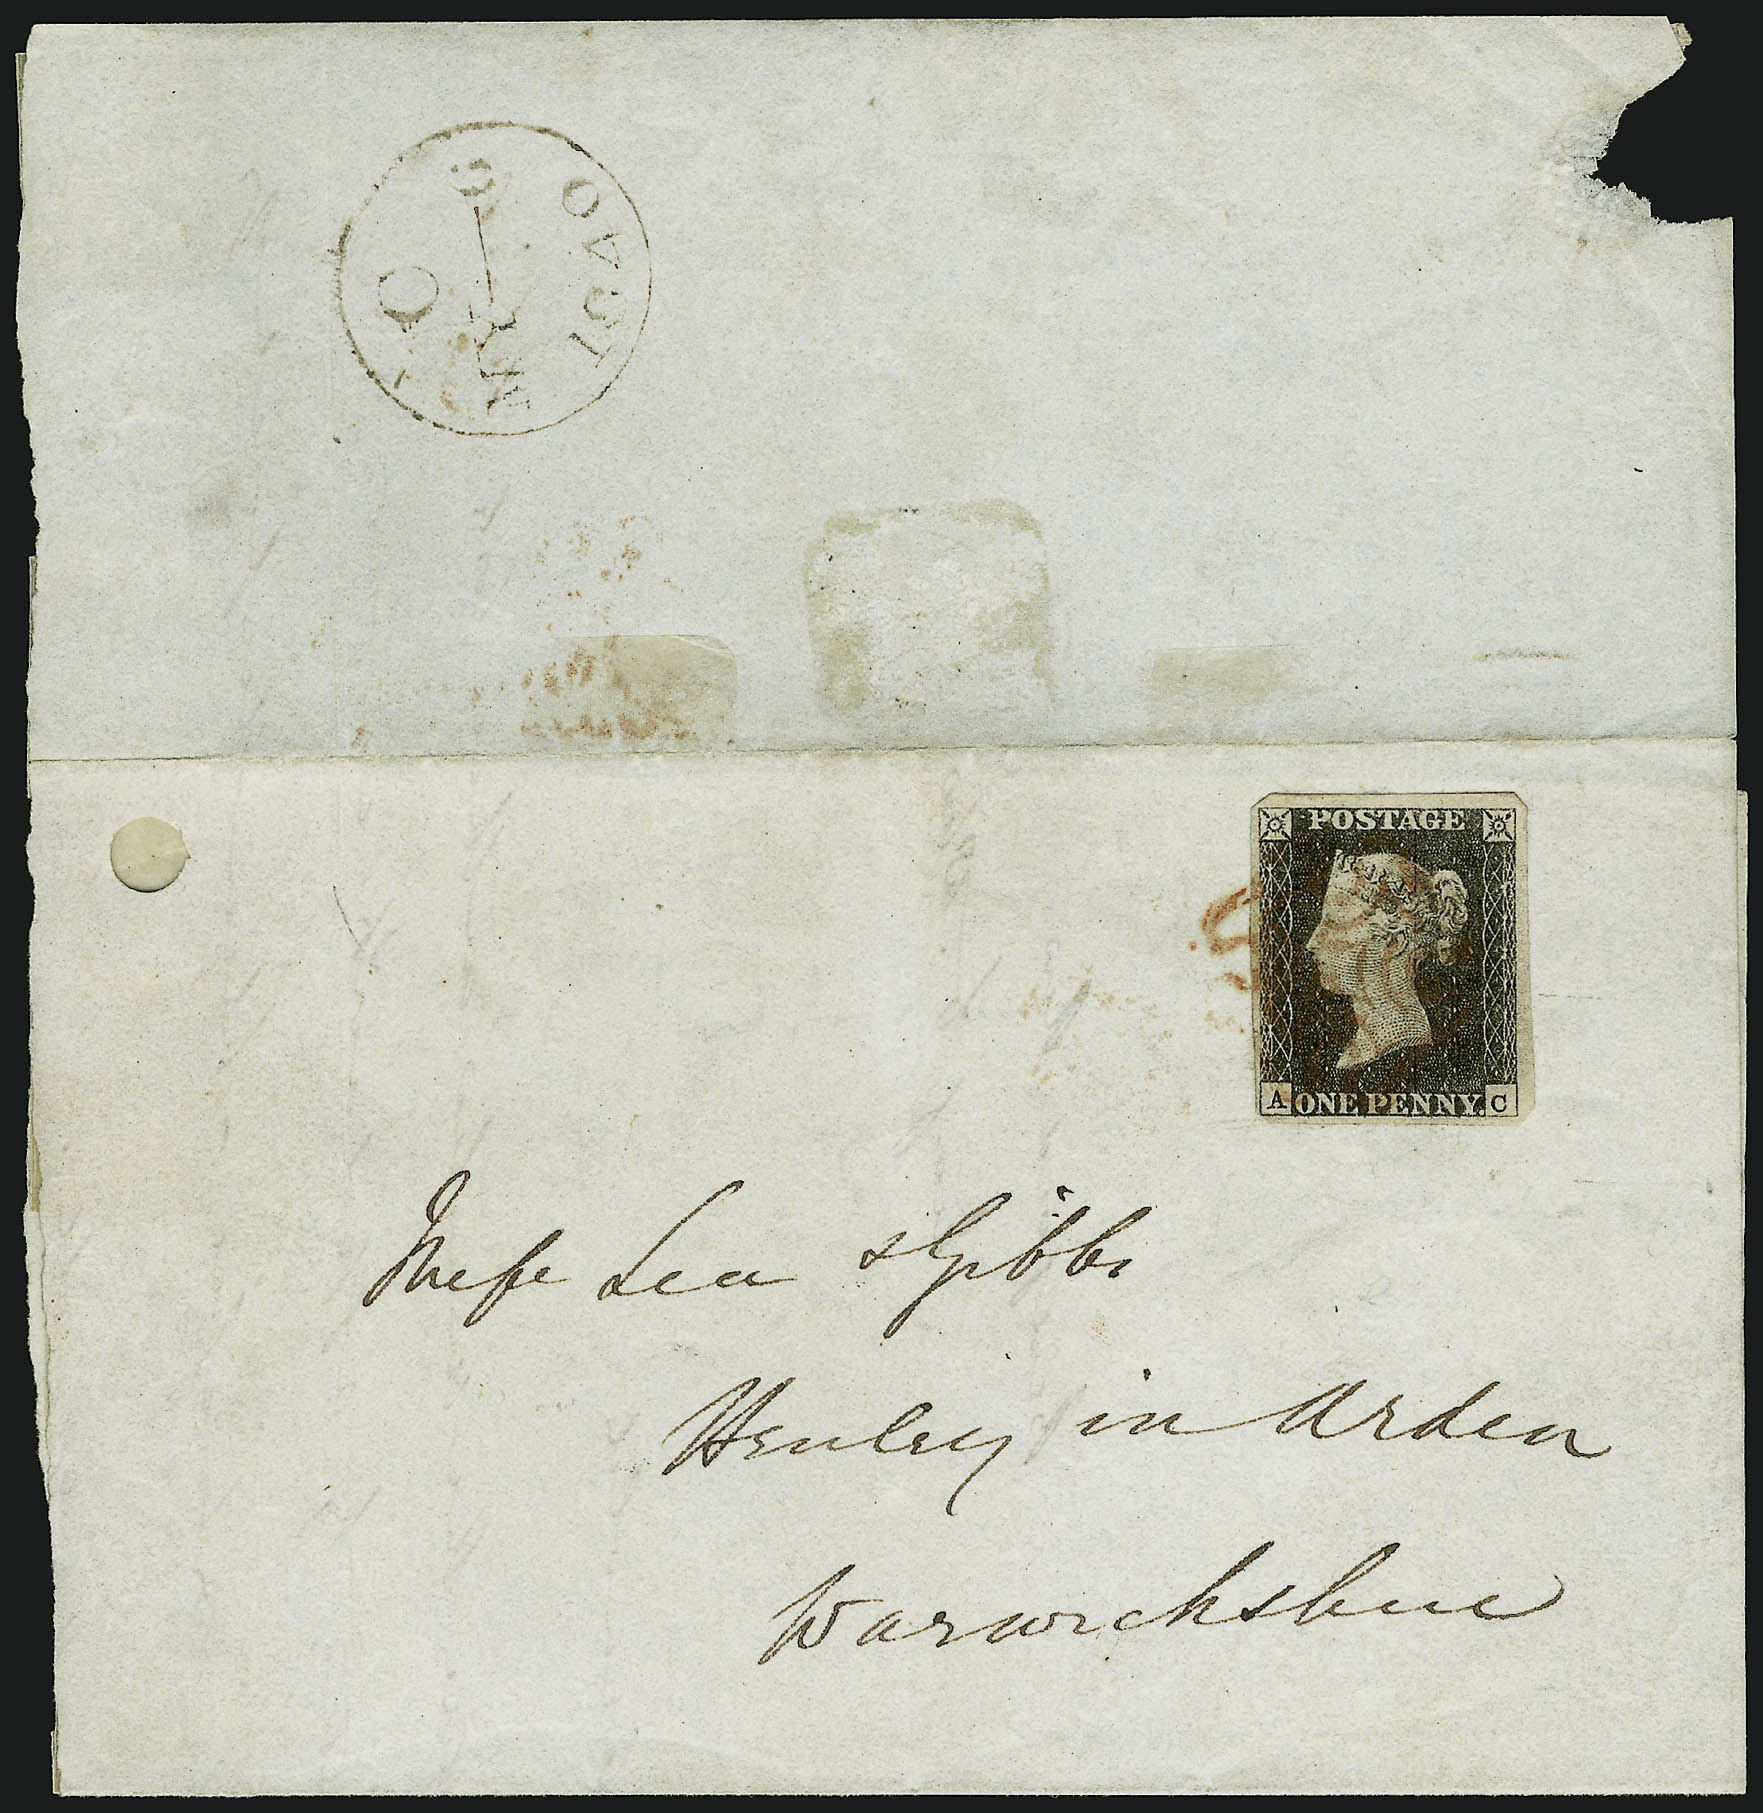 C
MY 6
1840
POSTAGE
A ONE PENNY. C
Messe Lea & Gibbs
Henley in Arden
Warwickshire